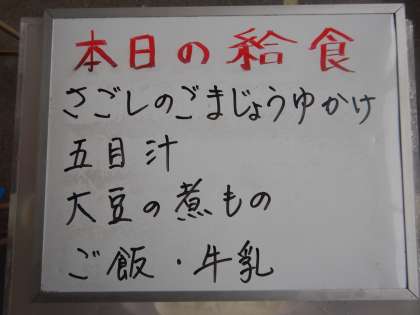 本日の給食
さごしのごまじょうゆかけ
五目汁
大豆の煮もの
ご飯・牛乳